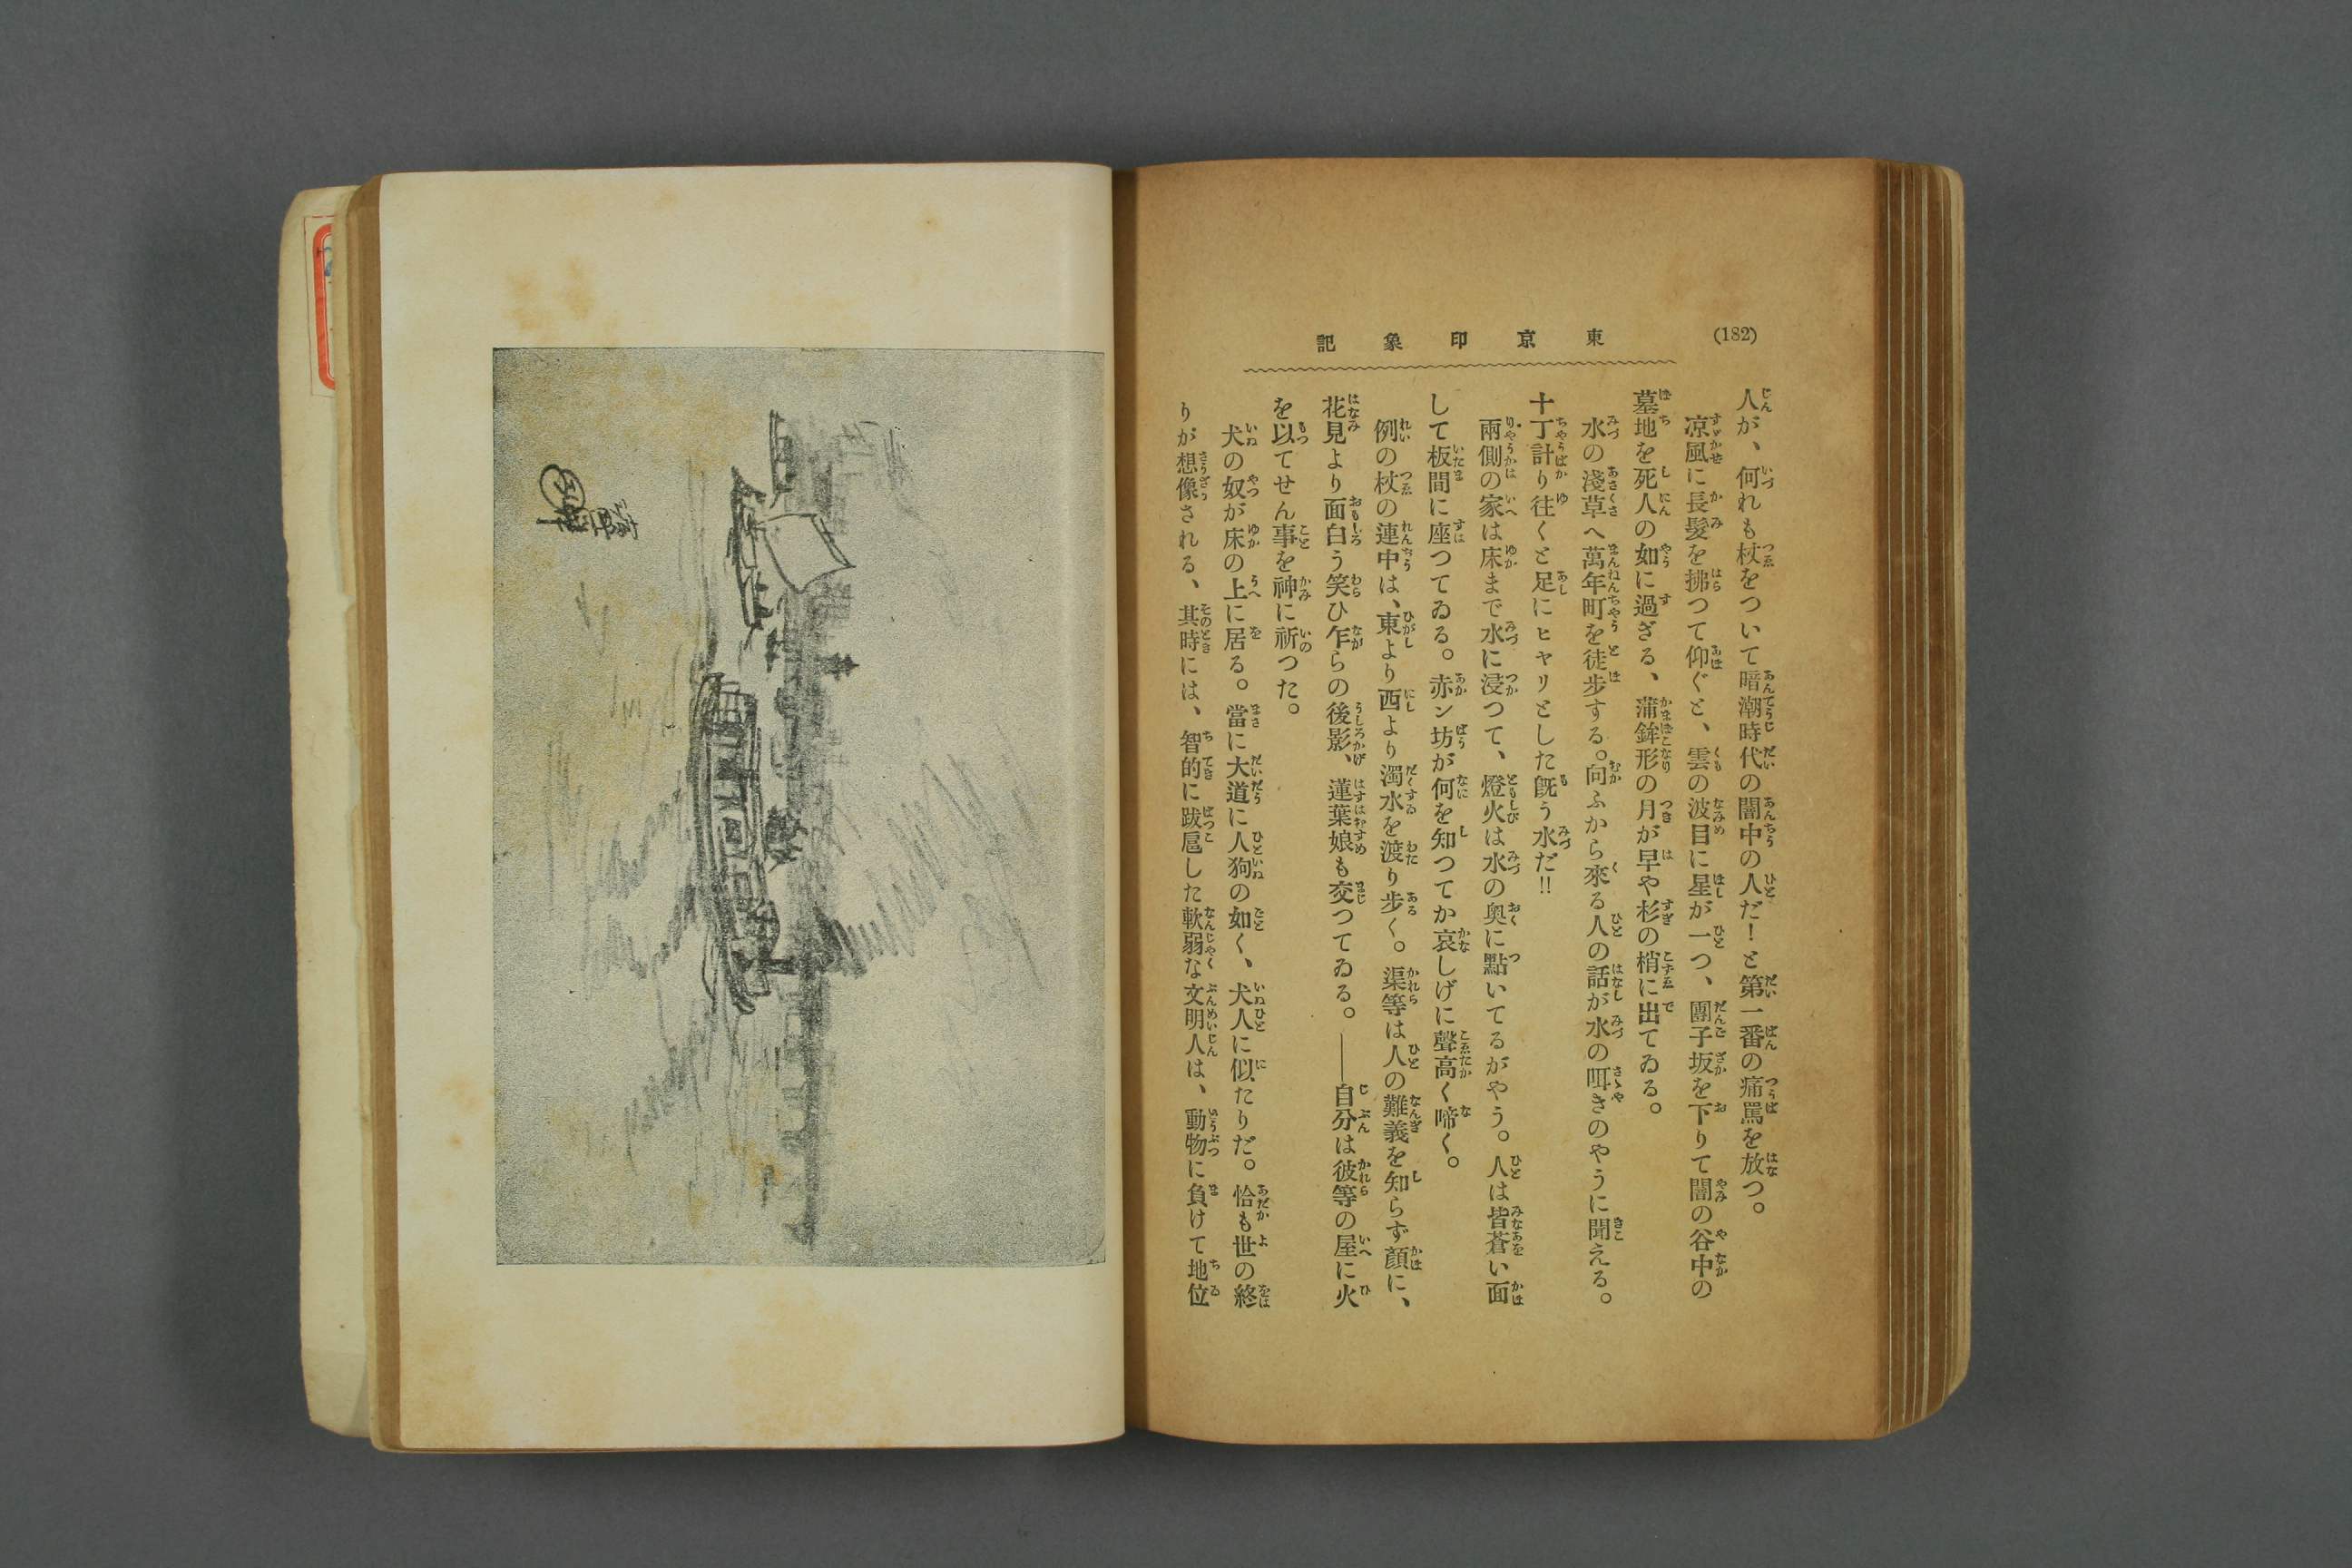 (182)
東京印象記
人が、何れも杖をついて暗潮時代の闇中の人だ！と第一番の痛罵を放つ。
凉風に長髮を拂つて仰ぐと、雲の波目に星が一つ、團子坂を下りて闇の谷中の
墓地を死人の如に過ぎる、蒲鉾形の月が早や杉の梢に出てゐる。
水の淺草へ萬年町を徒步する。向ふから來る人の話が水の咡きのやうに聞える。
十丁計り往くと足にヒヤリとした旣う水だ!!
兩側の家は床まで水に浸つて、燈火は水の奧に點いてるがやう。人は皆蒼い面
して板間に座つてゐる。赤ン坊が何を知つてか哀しげに聲高く啼く。
例の杖の連中は、東より西より濁水を渡り步く。渠等は人の難義を知らず顏に、
花見より面白う笑ひ乍らの後影、蓮葉娘も交つてゐる。――自分は彼等の屋に火
を以てせん事を神に祈つた。
犬の奴が床の上に居る。當に大道に人狗の如く、犬人に似たりだ。恰も世の終
りが想像される、其時には、智的に跋扈した軟弱な文明人は、動物に負けて地位